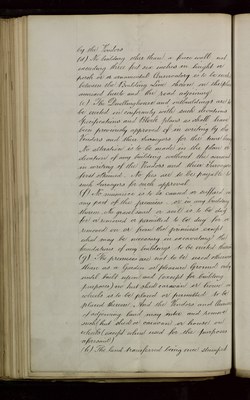 by the Vendors
(d) No building other than a fence wall not
exceeding three feet six inches in height or
posts or a summerhouse Conservatory is to be made
between the Building Line shewn on the plan
annexed hereto and the road adjoining
(e) The Dwellinghouse and outbuildings are to
be erected in conformity with such elevations
Specifications and Block plans as shall have
been previously approved of in writing by the
Vendors and their Surveyors for the time being
No alteration is to be made in the plan or
elevation of any building without the consent
in writing of the Vendors and their Surveyors
first obtained. No fee is to be payable to
such Surveyors for such approval
(f) No nuisance is to be caused or suffered in
any part of the premises or in any building
thereon No gravel sand or soil is to be dug
for or removed or permitted to be dug for or
removed on or from the premises except
what may be necessary in excavating the
foundations of any buildings to be erected thereon
(g) The premises are not to be used otherwise
than as a Garden or Pleasure Ground only
until built upon and (except for building
purposes) no hut shed caravan or house on
wheels is to be placed or permitted to be
placed thereon And the Vendors and Owners
of adjoining land may enter and remove
such hut shed or caravan or house on
wheels (except when used for the purposes
aforesaid)
(h) The land transferred being now stumped